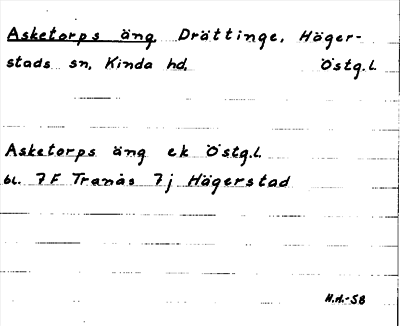 Asketorps äng, Drättinge, Häger-
stads sn, Kinda hd. Östg.l.
Asketorps äng ek Östg.l.
bl. 7F Tranås 7j Hägerstad
H.H.-58